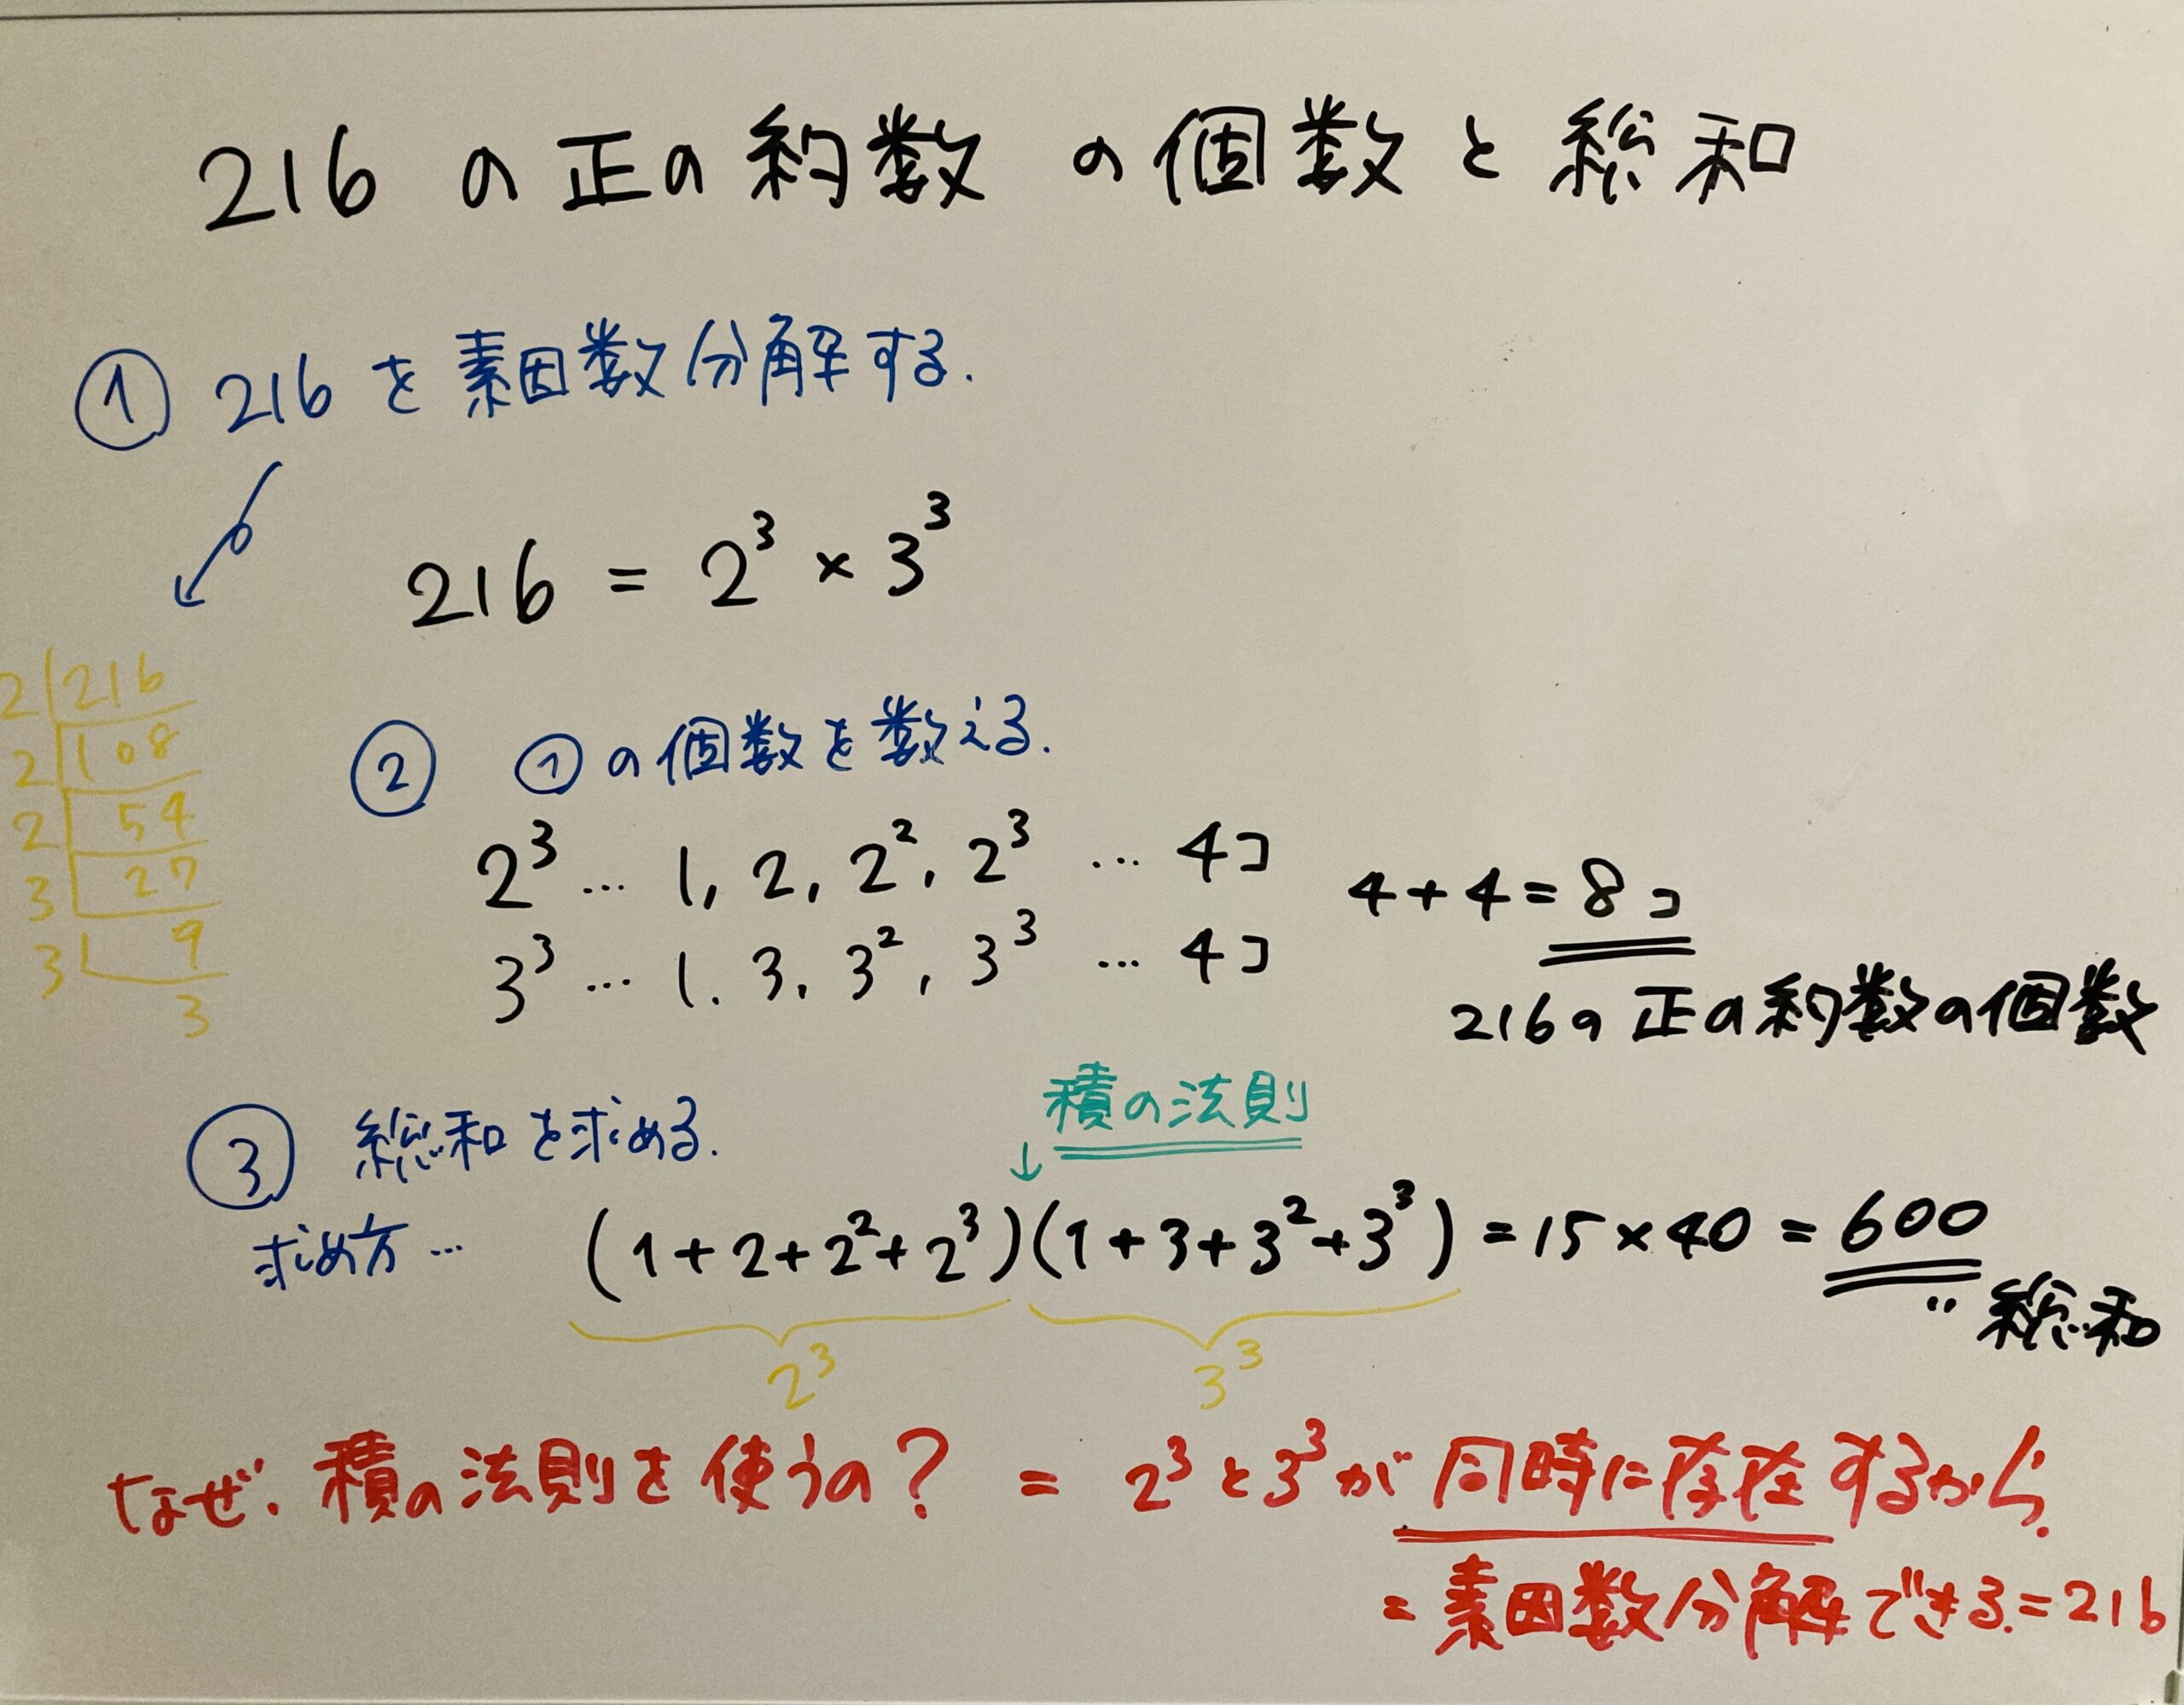 216 の正の約数 の個数と総和
① 216 を素因数分解する.
216 = 2³ × 3³
2 216
2 108
2 54
3 27
3 9
3
② ①の個数を数える.
2³ … 1, 2, 2², 2³ … 4コ
3³ … 1. 3, 3², 3³ … 4コ
4+4=8コ
216の正の約数の個数
積の法則
↓
③ 総和を求める.
求め方… (1+2+2²+2³)(1+3+3²+3³) = 15×40 = 600
‥総和
2³ 3³
なぜ、積の法則を使うの? = 2³と3³が同時に存在するから.
= 素因数分解できる.=216